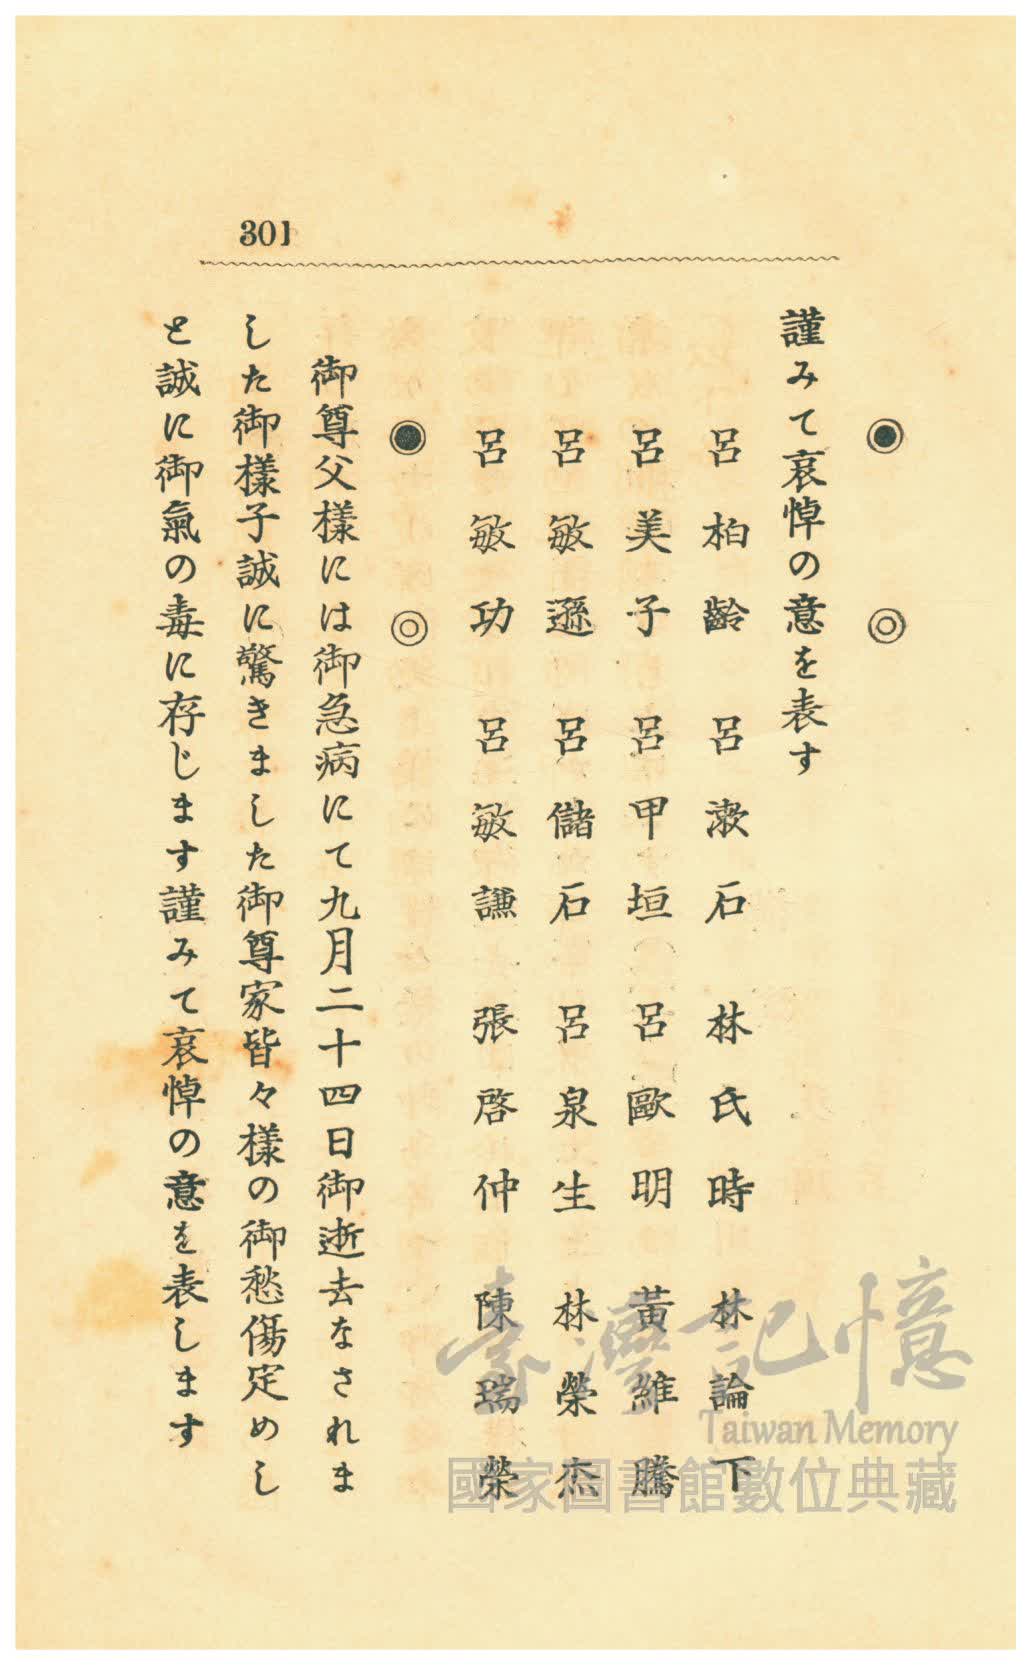 301
◉ ◎
謹みて哀悼の意を表す
呂柏齡 呂漱石 林氏時 林論下
呂美子 呂甲垣 呂歐明 黃維騰
呂敏遜 呂儲石 呂泉生 林榮杰
呂敏功 呂敏謙 張啓仲 陳瑞榮
◉ ◎
御尊父樣には御急病にて九月二十四日御逝去なされま
した御樣子誠に驚きました御尊家皆々樣の御愁傷定めし
と誠に御氣の毒に存じます謹みて哀悼の意を表します
臺灣記憶
Taiwan Memory
國家圖書館數位典藏